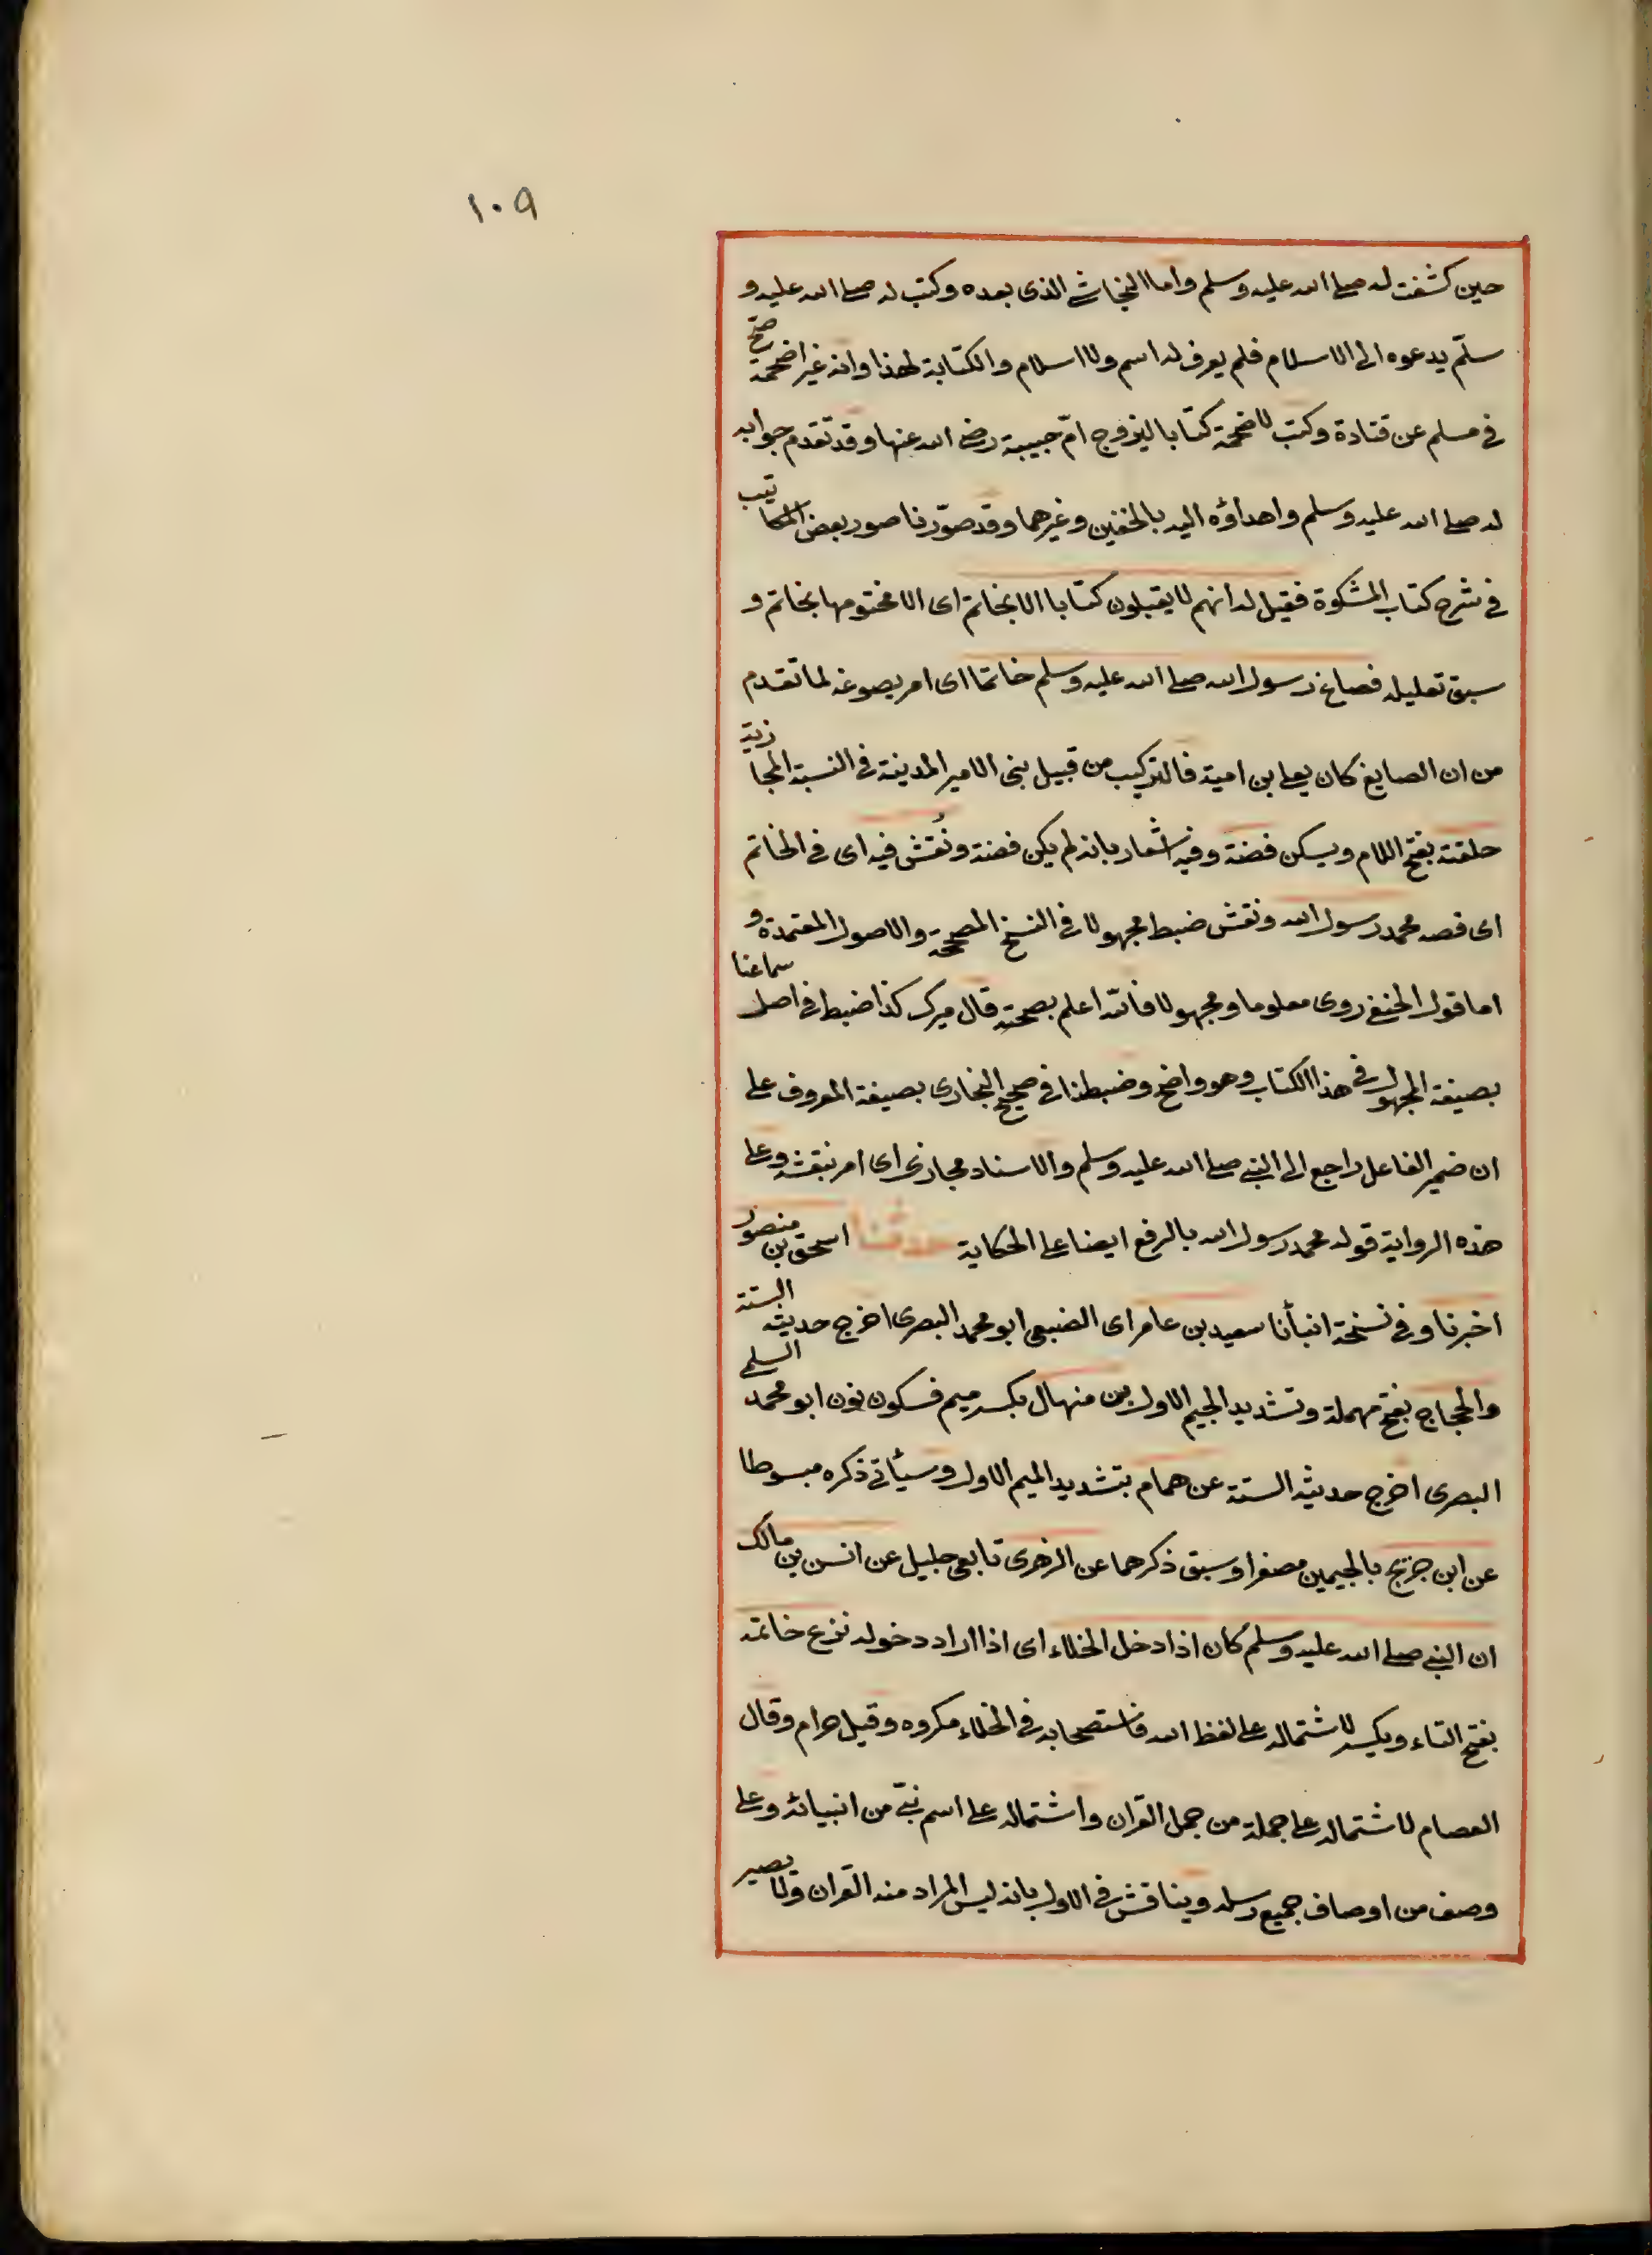 ١٠٩
حين كشفت له صلى الله عليه وسلم واما النجاشى الذى بعده وكتب له صلى الله عليه و
سلّم يدعوه الى الاسلام فلم يعرف له اسم ولا اسلام والكتابة لهذا وانه غير اضحمة صح
فى مسلم عن قتادة وكتب لاضحمة كتابا ليزوج امّ حبيبة رضى الله عنها وقد تقدم جوابه
له صلى الله عليه وسلم واهداؤه اليه بالخفين وغيرهما وقد صوّرنا صور بعض المكاتيب
فى شرح كتاب المشكوة فقيل له انهم لا يقبلون كتابا الا بخاتم اى الا مختوما بخاتم و
سبق تعليله فصاغ رسول الله صلى الله عليه وسلم خاتما اى امر بصوغه لما تقدم
من ان الصايغ كان يعلى بن امية فالتركيب من قبيل بنى الامير المدينة فى النسبة المجازية
حلقته بفتح اللام ويسكن فضة وفيه اشعار بانه لم يكن فضة ونُقش فيه اى فى الخاتم
اى فصه محمد رسول الله ونقش ضبط مجهولا فى النسخ المصححة والاصول المعتمدة و
اما قول الحنفى روى معلوما ومجهولا فالله اعلم بصحته قال ميرك كذا ضبط فى اصل سماعنا
بصيغة المجهول فى هذا الكتاب وهو واضح وضبطنا فى صحيح البخارى بصيغة المعروف على
ان ضمير الفاعل راجع الى النبى صلى الله عليه وسلم والاسناد مجازى اى امر بنقشه وعلى
هذه الرواية قوله محمد رسول الله بالرفع ايضا على الحكاية حدثنا اسحق بن منصور
اخبرنا وفى نسخة انبأنا سعيد بن عامر اى الضبعى ابو محمد البصرى اخرج حديثه الستة
والحجاج بفتح مهملة وتشديد الجيم الاول بن منهال بكسر ميم فسكون نون ابو محمد السلمى
البصرى اخرج حديثه الستة عن همام بتشديد الميم الاول وسيأتى ذكره مبسوطا
عن ابن جريج بالجيمين مصغرا وسبق ذكرهما عن الزهرى تابعى جليل عن انس بن مالك
ان النبى صلى الله عليه وسلم كان اذا دخل الخلاء اى اذا اراد دخوله نزع خاتمه
بفتح التاء ويكسر لاشتماله على لفظ الله فاستصحابه فى الخلاء مكروه وقيل حرام وقال
العصام لاشتماله على جملة من جمل القران واشتماله على اسم نبىّ من انبيائه وعلى
وصف من اوصاف جميع رسله ويناقش فى الاول بانه ليس المراد منه القران ولا يصير